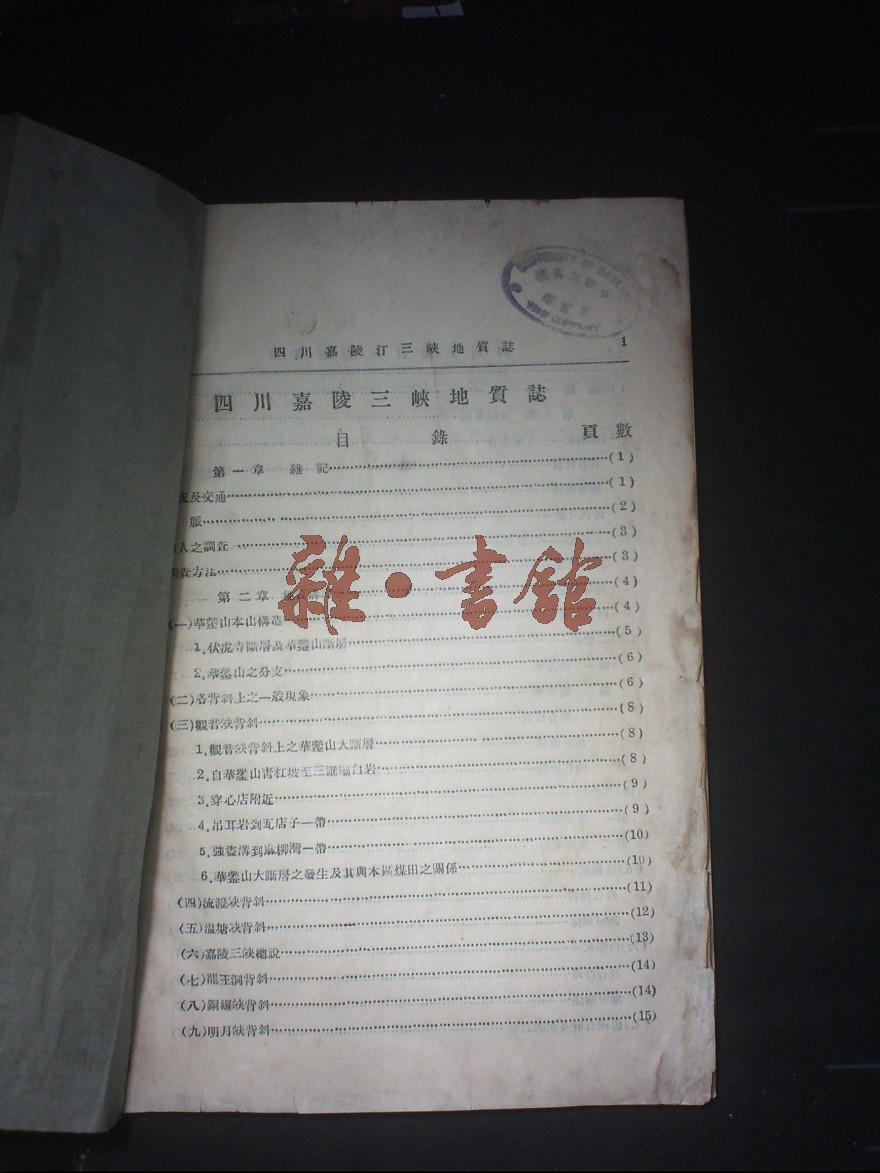 四川嘉陵江三峽地質誌 1
四川嘉陵三峽地質誌
目錄 頁數
第一章 雜記 (1)
及交通 (1)
脈 (2)
人之調查 (3)
調查方法 (3)
第二章 (4)
(一)華鎣山本山構造 (4)
1.伏虎寺斷層及華鎣山斷層 (5)
2.華鎣山之分支 (6)
(二)各背斜上之一般現象 (6)
(三)觀音峽背斜 (8)
1.觀音峽背斜上之華鎣山大斷層 (8)
2.自華鎣山青杠坡至三匯壩白岩 (8)
3.穿心店附近 (9)
4.吊耳岩到瓦店子一帶 (9)
5.強盜溝到麻柳灣一帶 (10)
6.華鎣山大斷層之發生及其與本區煤田之關係 (10)
(四)流瀝峽背斜 (11)
(五)溫塘峽背斜 (12)
(六)嘉陵三峽總說 (13)
(七)龍王洞背斜 (14)
(八)銅鑼峽背斜 (14)
(九)明月峽背斜 (15)
雜·書館